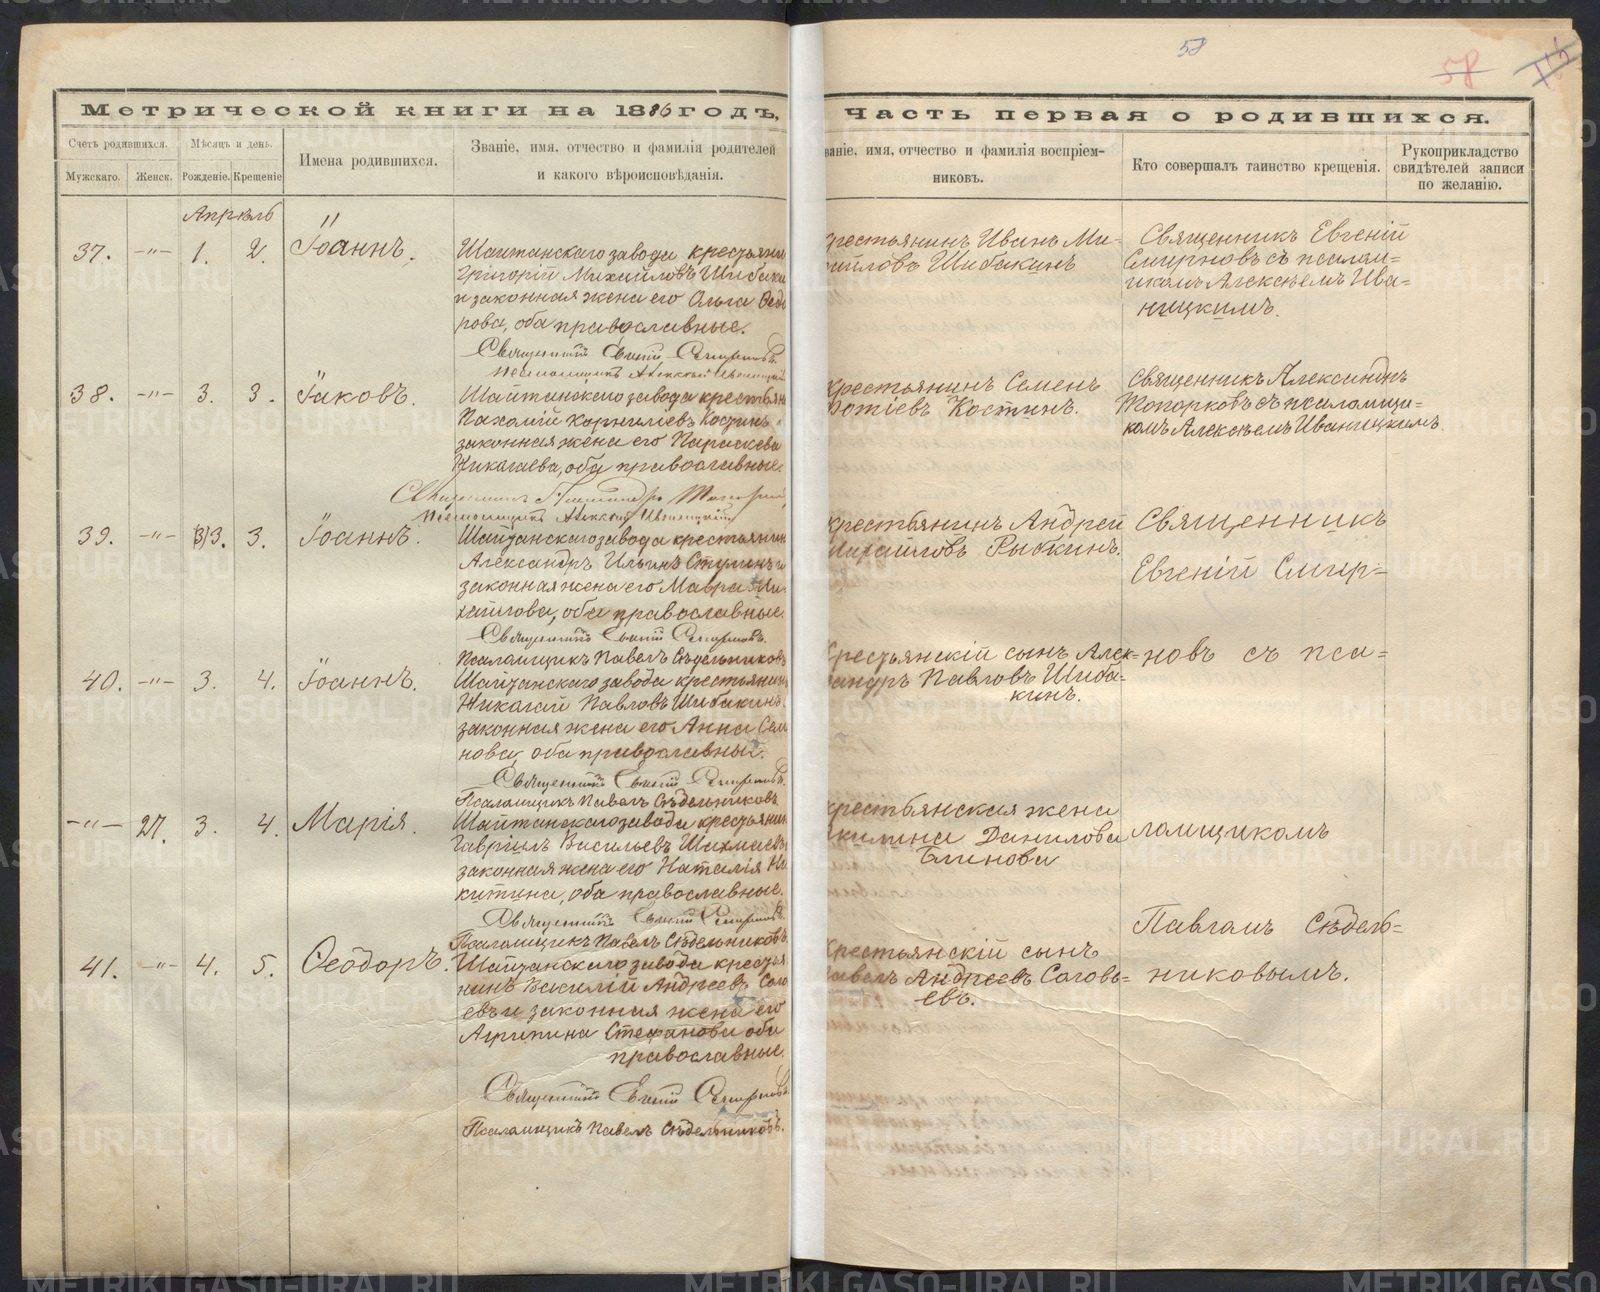 58
58
Метрической книги на 1886 годъ,
часть первая о родившихся.
Счетъ родившихся.
Мѣсяцъ и день.
Имена родившихся.
Званіе, имя, отчество и фамилія родителей
и какого вѣроисповѣданія.
Мужскаго.
Женск.
Рожденіе.
Крещеніе
ваніе, имя, отчество и фамилія воспріем-
никовъ.
Кто совершалъ таинство крещенія.
Рукоприкладство
свидѣтелей записи
по желанію.
Апрѣль
37. -"- 1. 2. Іоаннъ.
Шайтанскаго завода крестьяни
Григорій Михайловъ Шибаки
и законная жена его Ольга Ѳедо
рова, оба православные.
Священникъ Евгеній Смирновъ.
Псаломщикъ Алексѣй Иваницкій
рестьянинъ Иванъ Ми-
айловъ Шибакинъ
Священникъ Евгеній
Смирновъ съ псалом-
щикомъ Алексѣемъ Ива-
ницкимъ.
38. -"- 3. 3. Іаковъ.
Шайтанскаго завода крестьян
Пахомій Корниліевъ Костинъ
законная жена его Параскева
Николаева, оба православные.
Псаломщикъ Алексѣй Иваницкій
крестьянинъ Семенъ
Фотіевъ Костинъ.
Священникъ Александръ
Топорковъ съ псаломщи-
комъ Алексѣемъ Иваницкимъ.
39. -"- 3. 3. Іоаннъ.
Шайтанскаго завода крестьянин
Александръ Ильинъ Ступинъ и
законная жена его Мавра Ми-
хайлова, оба православные.
Священникъ Евгеній Смирновъ.
Псаломщикъ Павелъ Сѣдельниковъ
крестьянинъ Андрей
Михайловъ Рыбкинъ.
Священникъ
Евгеній Смир-
40. -"- 3. 4. Іоаннъ.
Шайтанскаго завода крестьянин
Николай Павловъ Шибакинъ
законная жена его Анна Сем
нова, оба православны.
Священникъ Евгеній Смирновъ.
Псаломщикъ Павелъ Сѣдельниковъ.
Крестьянскій сынъ Алек-
сандръ Павловъ Шиба-
кинъ.
новъ съ пса-
-"- 27. 3. 4. Марія.
Шайтанскаго завода крестьянин
Гавріилъ Васильевъ Шахмаевъ
законная жена его Наталія Ни
китина, оба православные.
Священникъ Евгеній Смирновъ.
Псаломщикъ Павелъ Сѣдельниковъ.
крестьянская жена
Акилина Данилова
Блинова
ломщикомъ
Павломъ Сѣдель-
41. -"- 4. 5. Ѳеодоръ.
Шайтанскаго завода крестья
нинъ Василій Андреевъ Соло
евъ и законная жена его
Агрипина Стефанова оба
православные.
Священникъ Евгеній Смирновъ.
Псаломщикъ Павелъ Сѣдельниковъ.
Крестьянскій сынъ
Павелъ Андреевъ Соловь-
евъ.
никовымъ.